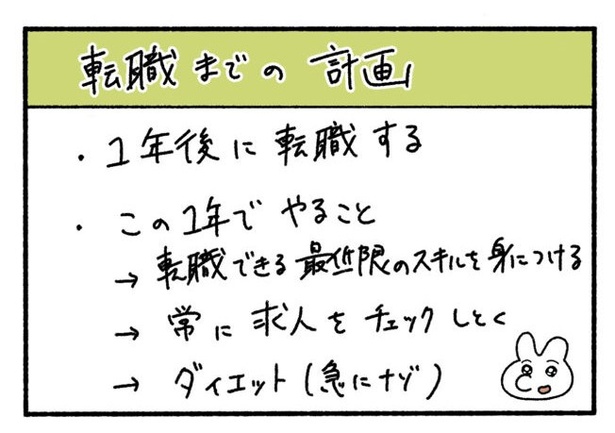 転職までの計画
・1年後に転職する
・この1年でやること
→ 転職できる最低限のスキルを身につける
→ 常に求人をチェックしとく
→ ダイエット(急にナゾ)